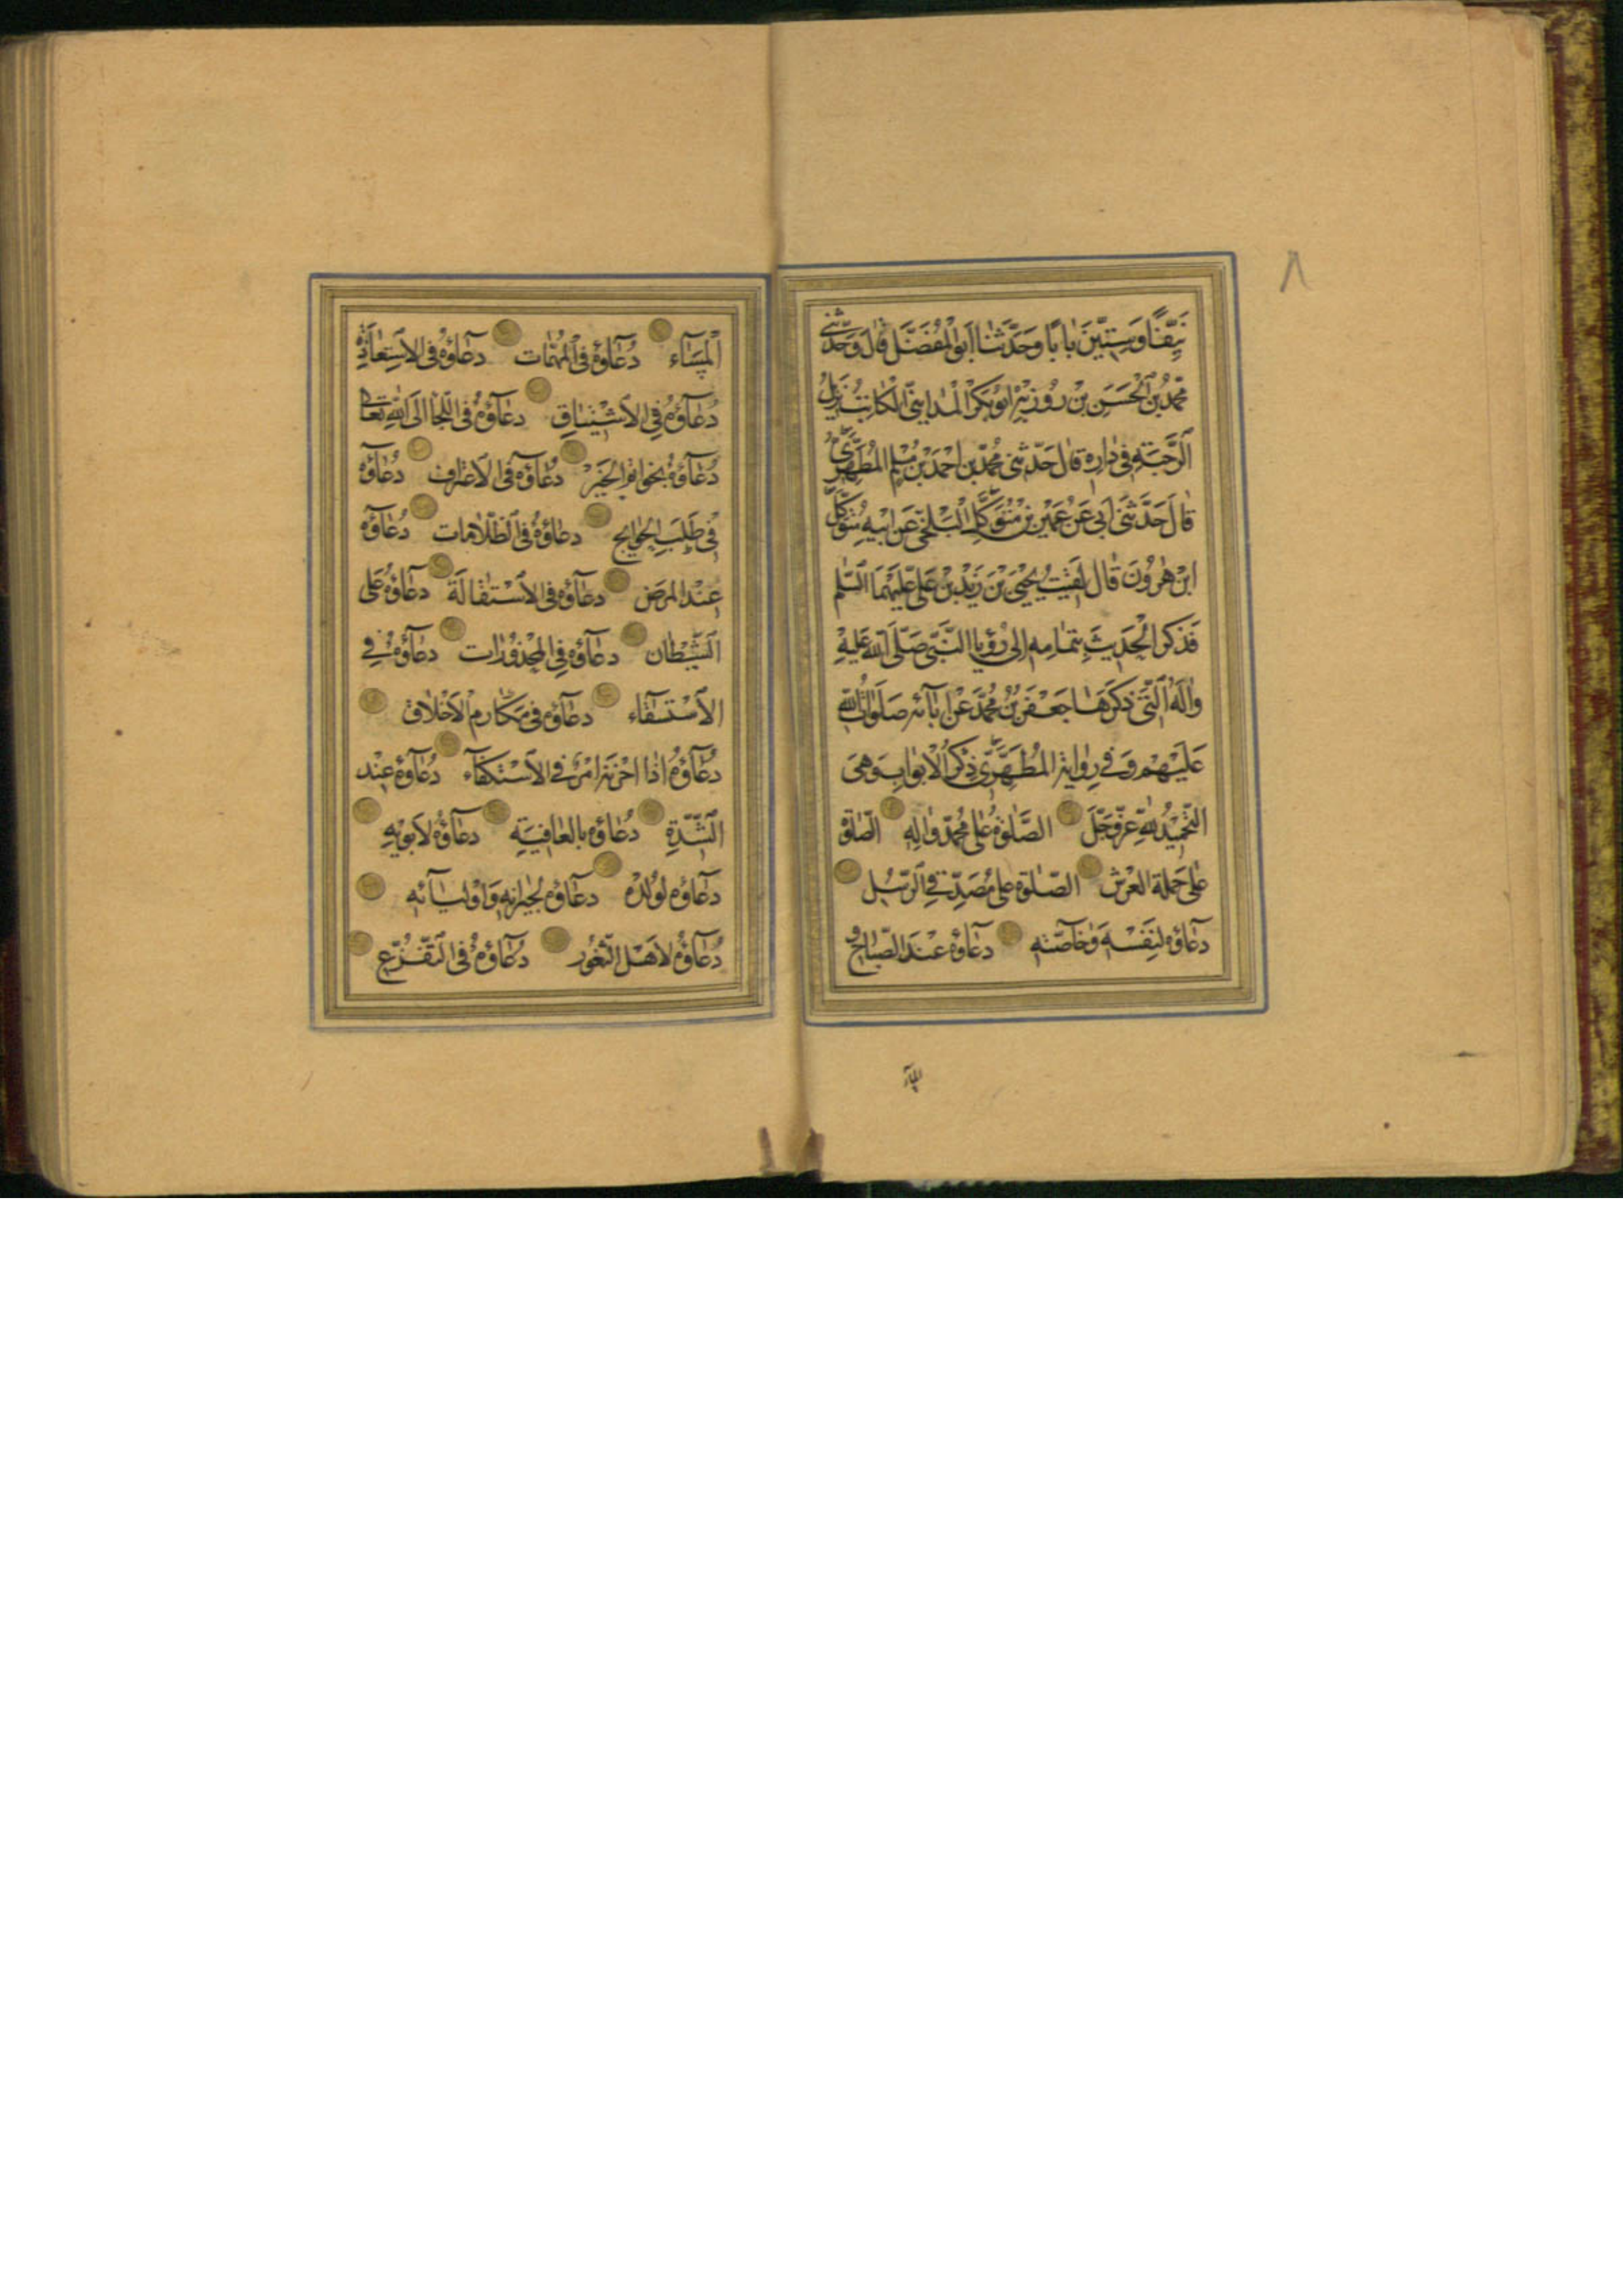 ٨
نَيِّفًا وَسِتِّينَ بٰابًا وَحَدَّثَنٰا اَبُو الْمُفَضَّل قٰالَ وَحَدَّثَنٖى
مُحَمَّدُ بْنُ الْحَسَنِ بْنِ رُوزْبِهْ اَبُو بَكْرٍ الْمَدٰاينِىُّ الْكٰاتِبُ نَزٖيلُ
الرَّحْبَةِ فٖى دٰارِهٖ قٰالَ حَدَّثَنٖى مُحَمَّدُ بْنُ اَحْمَدَ بْنِ مُسْلِمٍ الْمُطَهَّرِىُّ
قٰالَ حَدَّثَنٖى اَبٖى عَنْ عُمَيْرِ بْنِ مُتَوَكِّلٍ الْبَلْخِىِّ عَنْ اَبٖيهِ مُتَوَكِّلِ
ابْنِ هٰرُونَ قٰالَ لَقٖيتُ يَحْيَى بْنَ زَيْدِ بْنِ عَلِىٍّ عَلَيْهِمَا السَّلٰم
فَذَكَرَ الْحَدٖيثَ بِتَمٰامِهٖ اِلٰى رُؤْيَا النَّبِىِّ صَلَّى اللّٰهُ عَلَيْهِ
وَاٰلِهِ الَّتٖى ذَكَرَهٰا جَعْفَرُ بْنُ مُحَمَّدٍ عَنْ اٰبٰآئِهٖ صَلَوٰاتُ اللّٰهِ
عَلَيْهِمْ وَفٖى رِوٰايَةِ الْمُطَهَّرِىِّ ذِكْرُ الْاَبْوٰابِ وَهِىَ
التَّحْمٖيدُ لِلّٰهِ عَزَّوَجَلَّ الصَّلٰوةُ عَلٰى مُحَمَّدٍ وَاٰلِهٖ الصَّلٰوةُ
عَلٰى حَمَلَةِ الْعَرْش الصَّلٰوةُ عَلٰى مُصَدِّقِى الرُّسُلِ
دعٰاؤُهُ لِنَفْسِهٖ وَخٰاصَّتِهٖ دعٰاؤُهُ عِنْدَ الصَّبٰاحِ وَ
الْمَسٰآءِ دُعٰاؤُهُ فِى الْمُهِمّٰات دعٰآؤُهُ فِى الْاِسْتِعٰاذَةِ
دُعٰآؤُهُ فِى الْاِشْتِيٰاقِ دعٰآؤُهُ فِى اللَّجَأ اِلَى اللّٰهِ تَعٰالٰى
دُعٰآؤُهُ بِخَوٰاتِمِ الْخَيْرِ دُعٰاؤُهُ فِى الْاِعْتِرٰاف دُعٰآؤُهُ
فٖى طَلَبِ الْحَوٰايج دعٰاؤُهُ فِى الظُّلٰامٰات دُعٰآؤُهُ
عِنْدَ الْمَرَضِ دعٰآؤُهُ فِى الْاِسْتِقٰالَةِ دعٰآؤُهُ عَلَى
الشَّيْطٰان دعٰآؤُهُ فِى الْمَحْذُورٰات دعٰآؤُهُ فِى
الْاِسْتِسْقٰآء دعٰآؤُهُ فٖى مَكٰارِمِ الْاَخْلٰاق
دُعٰآؤُهُ اِذٰا اَحْزَنَهُ اَمْرٌ فِى الْاِسْتِكْفٰآء دُعٰآؤُهُ عِنْدَ
الشِّدَّةِ دُعٰآؤُهُ بِالْعٰافِيَةِ دعٰآؤُهُ لِاَبَوَيْهِ
دعٰآؤُهُ لِوُلْدِهٖ دعٰآؤُهُ لِجٖيرٰانِهٖ وَاَوْلِيٰآئِهٖ
دُعٰآؤُهُ لِاَهْلِ الثُّغُور دُعٰآؤُهُ فِى التَّفَزُّعِ